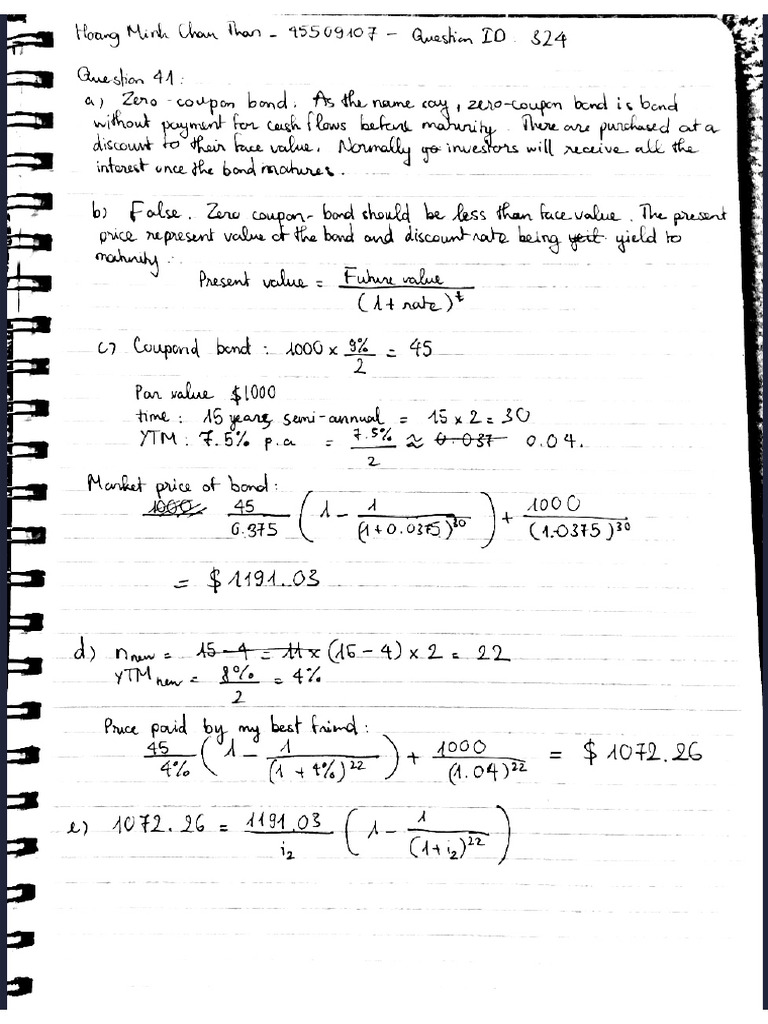 Hoang Minh Chau Than - 45509107 - Question ID. 324
Question 41:
a) Zero-coupon bond. As the name say, zero-coupon bond is bond
without payment for cash flows before maturity. There are purchased at a
discount to their face value. Normally go investors will receive all the
interest once the bond matures.
b) False. Zero coupon-bond should be less than face value. The present
price represent value of the bond and discount rate being yeit yield to
maturity.
Present value = Future value / (1 + rate)^t
c) Coupond bond: 1000 × 9%/2 = 45
Par value $1000
time: 15 years, semi-annual = 15 × 2 = 30
YTM: 7.5% p.a = 7.5%/2 ≈ 0.037 0.04.
Market price of bond:
1000 45/0.375 (1 - 1/(1+0.0375)^30) + 1000/(1.0375)^30
= $1191.03
d) n new = 15 - 4 = 11 × (15 - 4) × 2 = 22
YTM new = 8%/2 = 4%
Price paid by my best friend:
45/4% (1 - 1/(1 + 4%)^22) + 1000/(1.04)^22 = $1072.26
e) 1072.26 = 1191.03/i₂ (1 - 1/(1+i₂)^22)